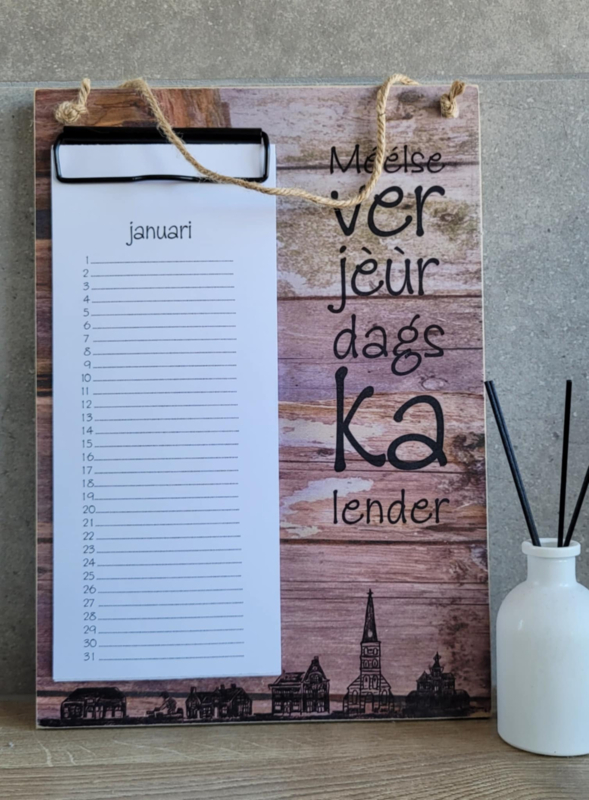 januari
1
2
3
4
5
6
7
8
9
10
11
12
13
14
15
16
17
18
19
20
21
22
23
24
25
26
27
28
29
30
31
Méélse
ver
jèùr
dags
ka
lender